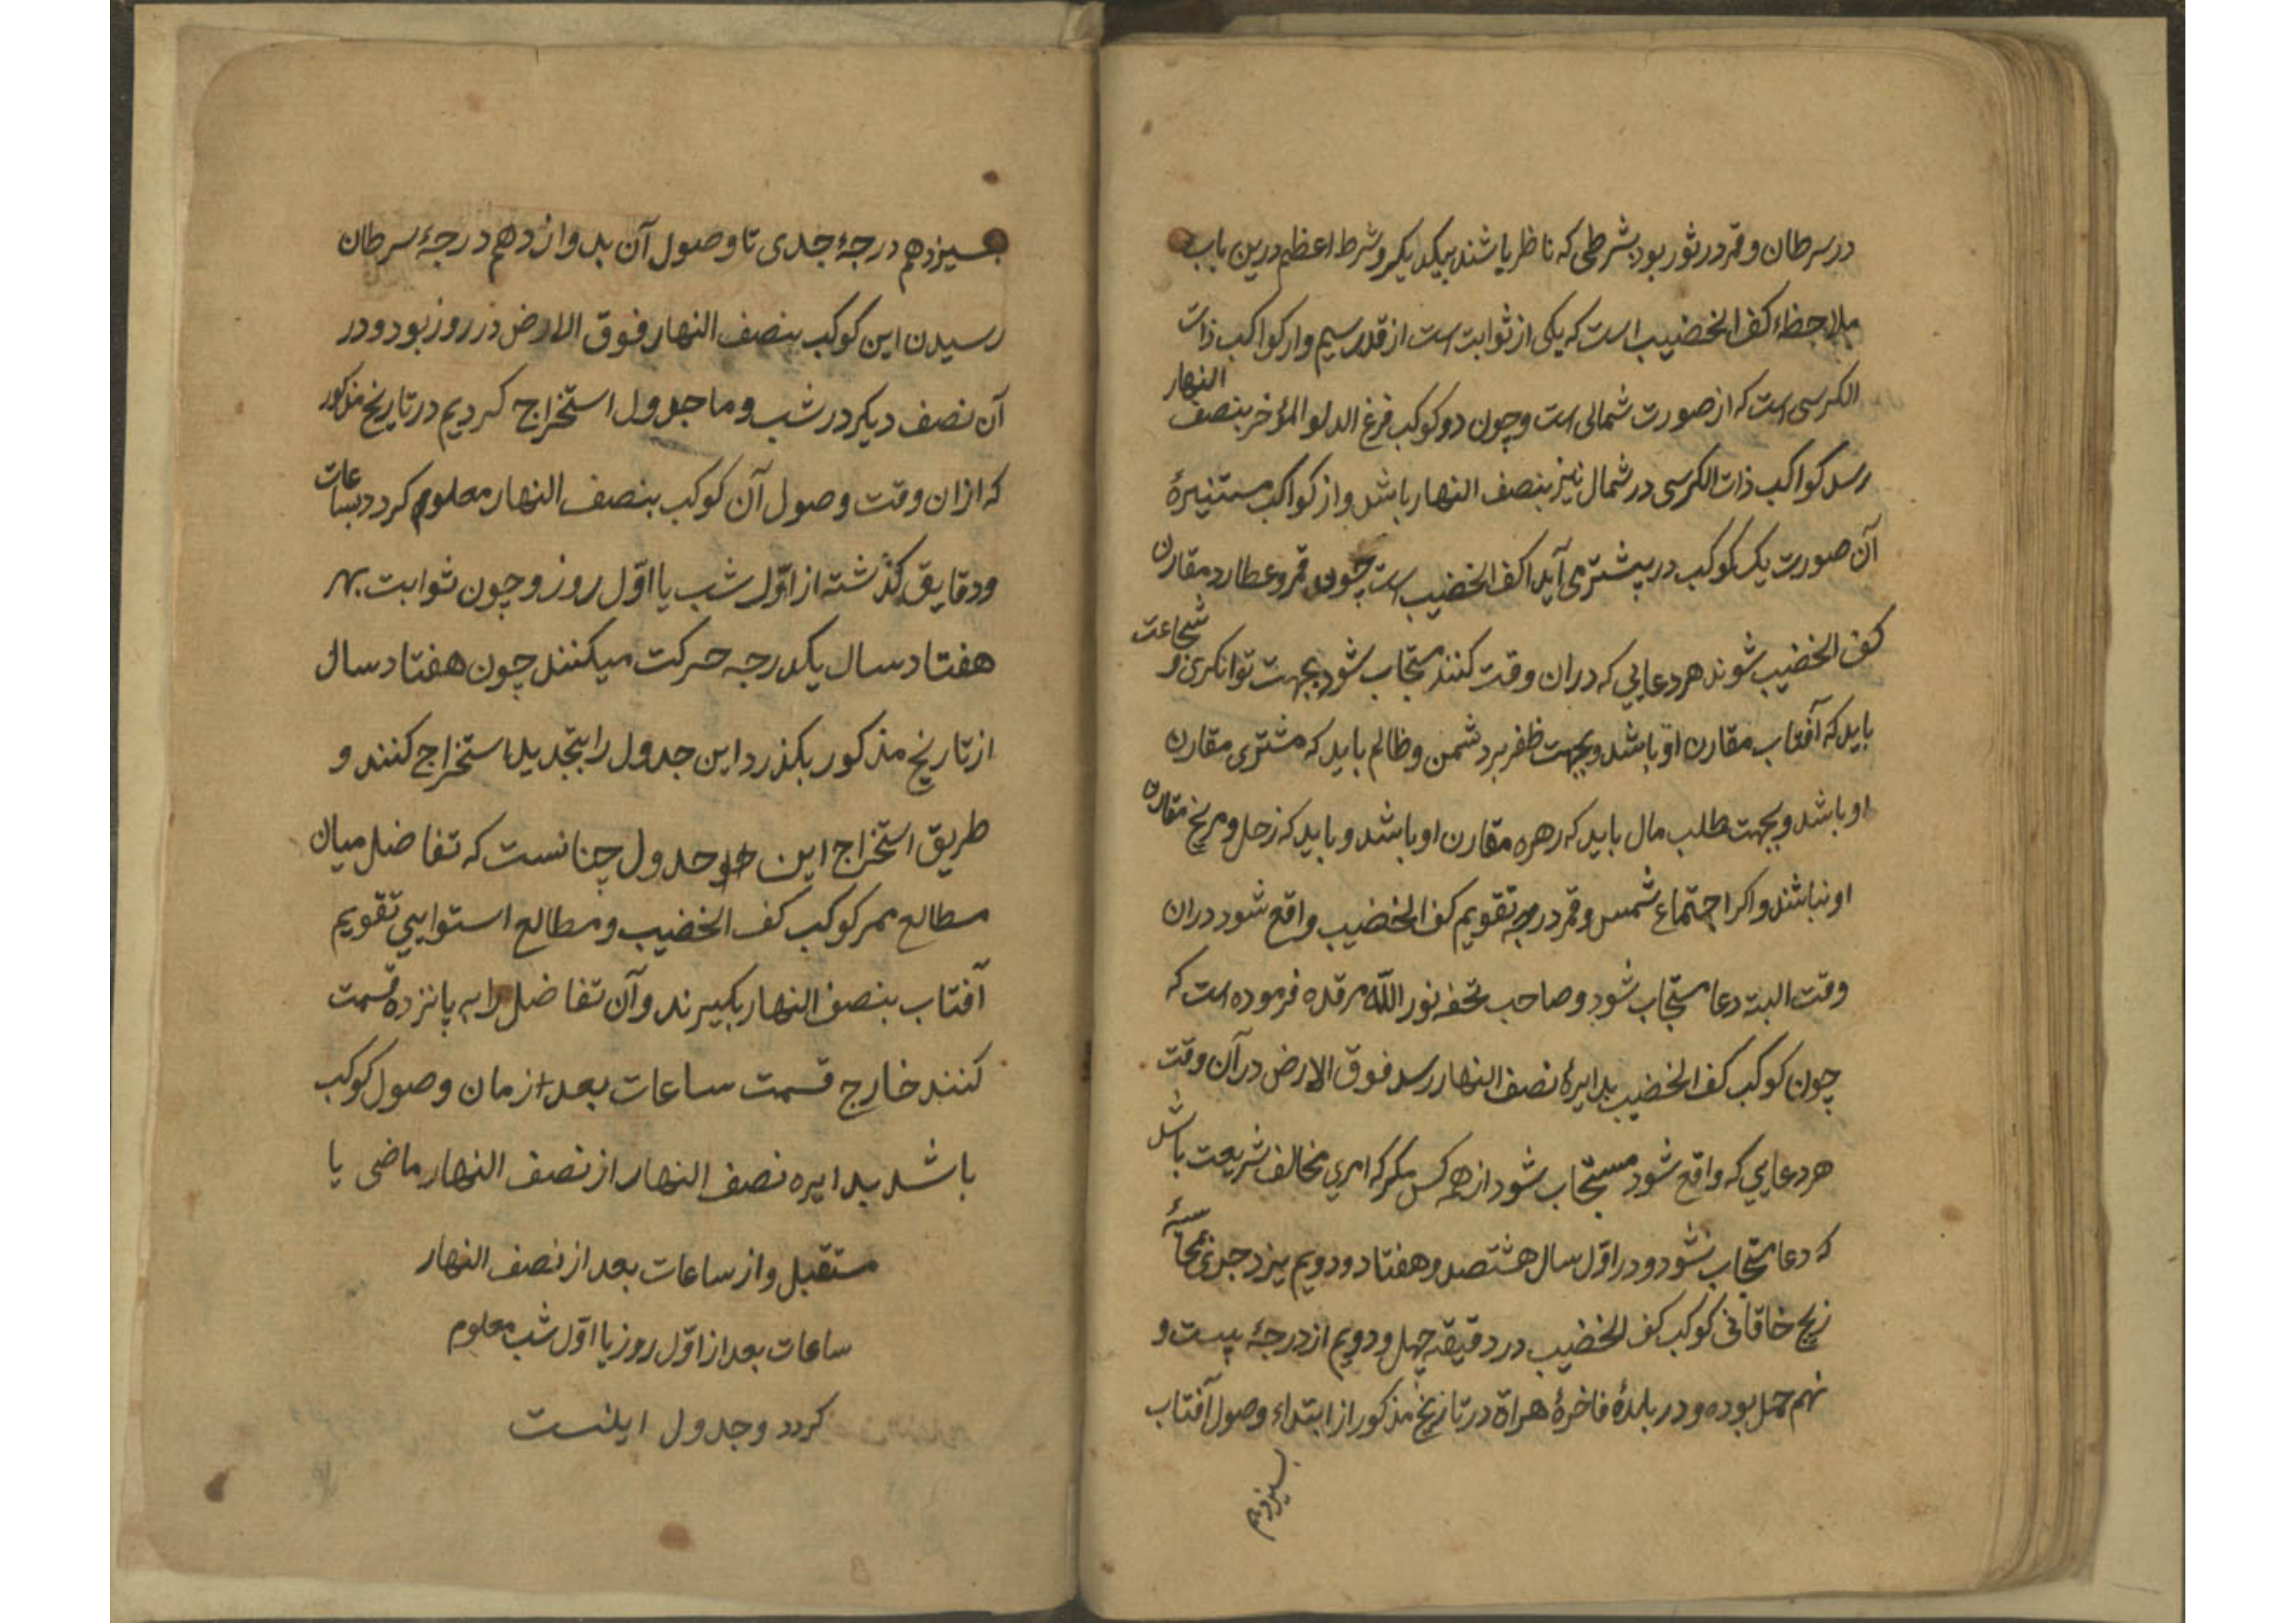 در سرطان و قمر در ثور بود بشرطی که ناظر باشند بیکدیگر و شرط اعظم درین باب
ملاحظهٔ کف الخضیب است که یکی از ثوابت است از قدر سیم و از کواکب ذات
الکرسی است که از صورت شمالی است و چون دو کوکب فرغ الدلو المؤخر بنصف النهار
رسد کواکب ذات الکرسی در شمال نیز بنصف النهار باشد و از کواکب مستنیرهٔ
آن صورت یک کوکب در پیشتر می آید کف الخضیب است چون قمر و عطارد مقارن
کف الخضیب شوند هر دعایی که دران وقت کنند مستجاب شود بجهت توانکری و شجاعت
باید که آفتاب مقارن او باشد و بجهت ظفر بر دشمن و ظالم باید که مشتری مقارن
او باشد و بجهت طلب مال باید که زهره مقارن او باشد و باید که زحل و مریخ مقارن
او نباشند و اکر اجتماع شمس و قمر در درجه تقویم کف الخضیب واقع شود دران
وقت البته دعا مستجاب شود و صاحب تحفه نور الله مرقده فرموده است که
چون کوکب کف الخضیب بدایرهٔ نصف النهار رسد فوق الارض در آن وقت
هر دعایی که واقع شود مستجاب شود از همه کس مکر که امری مخالف شریعت باشد
که دعا مستجاب نشود و در اوّل سال هشتصد و هفتاد و دویم یزدجردی
زیج خاقانی کوکب کف الخضیب در دقیقه چهل و دویم از درجهٔ بیست و
نهم حمل بوده و در بلدهٔ فاخرهٔ هراة در تاریخ مذکور از ابتداء وصول آفتاب
بسیزدهم
بسیزدهم درجهٔ جدی تا وصول آن بدوازدهم درجهٔ سرطان
رسیدن این کوکب بنصف النهار فوق الارض در روز بود و در
آن نصف دیکر در شب و ما جدول استخراج کردیم در تاریخ مذکور
که ازان وقت وصول آن کوکب بنصف النهار معلوم کردد بساعات
و دقایق کذشته از اوّل شب یا اوّل روز و چون ثوابت بهر
هفتاد سال یکدرجه حرکت میکنند چون هفتاد سال
از تاریخ مذکور بکذرد این جدول را بتجدید استخراج کنند و
طریق استخراج این جدول چنانست که تفاضل میان
مطالع ممر کوکب کف الخضیب و مطالع استوایی تقویم
آفتاب بنصف النهار بکیرند و آن تفاضل را به پانزده قسمت
کنند خارج قسمت ساعات بعد از زمان وصول کوکب
باشد بدایره نصف النهار از نصف النهار ماضی یا
مستقبل و از ساعات بعد از نصف النهار
ساعات بعد از اوّل روز یا اوّل شب معلوم
کردد و جدول اینست